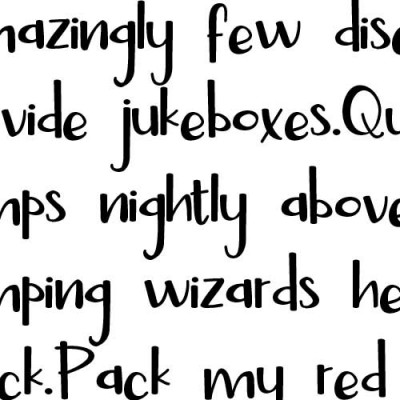 mazingly few disc
vide jukeboxes.Qu
mps nightly above
mping wizards he
ck.Pack my red